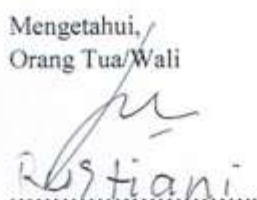 Mengetahui,
Orang Tua/Wali
Rustiani